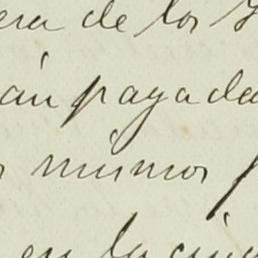 era de los
án pagada
mismos
en la